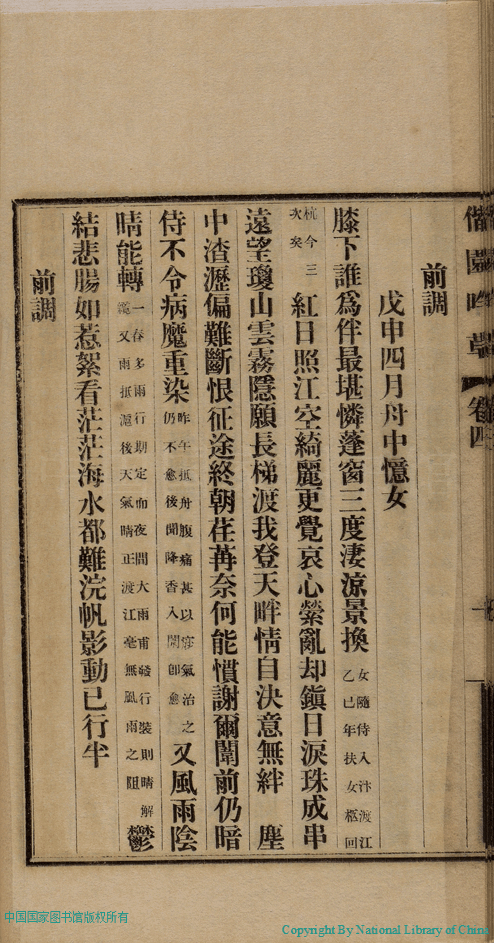 偕園吟草 卷四
前調
戊申四月舟中憶女
膝下誰爲伴最堪憐蓬窗三度淒涼景換女隨侍入汴渡江乙巳年扶女柩回
杭今三次矣紅日照江空綺麗更覺哀心縈亂却鎭日淚珠成串
遠望瓊山雲霧隱願長梯渡我登天畔情自決意無絆 塵
中渣瀝偏難斷恨征途終朝荏苒奈何能慣謝爾闈前仍暗
侍不令病魔重染昨午抵舟腹痛甚以痧氣治之仍不愈後聞降香入卽愈又風雨陰
晴能轉一春多雨行期定而夜間大雨甫發行裝則晴解纜又雨抵滬後天氣晴正渡江毫無風雨之阻鬱
結悲腸如惹絮看茫茫海水都難浣帆影動已行半
前調
中国国家图书馆版权所有
Copyright By National Library of China